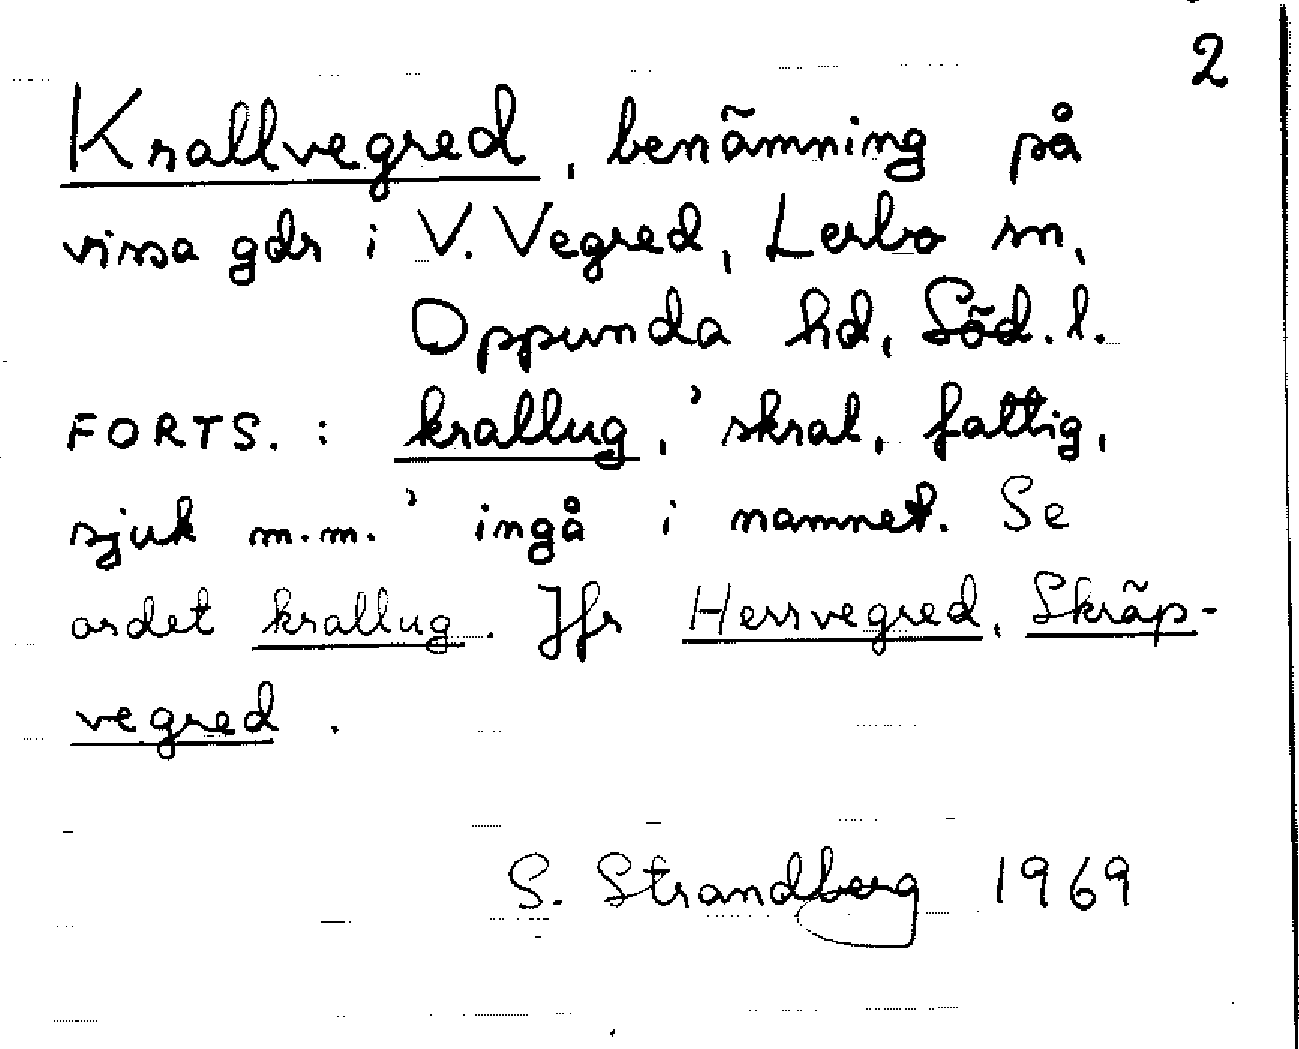 2
Krallvegred, benämning på
vissa gdr i V. Vegred, Lerbo sn,
Oppunda hd, Söd. l.
FORTS. : krallug, 'skral, fattig,
sjuk m.m.' ingå i namnet. Se
ordet krallug. Jfr Herrvegred, Skräp-
vegred.
S. Strandberg 1969